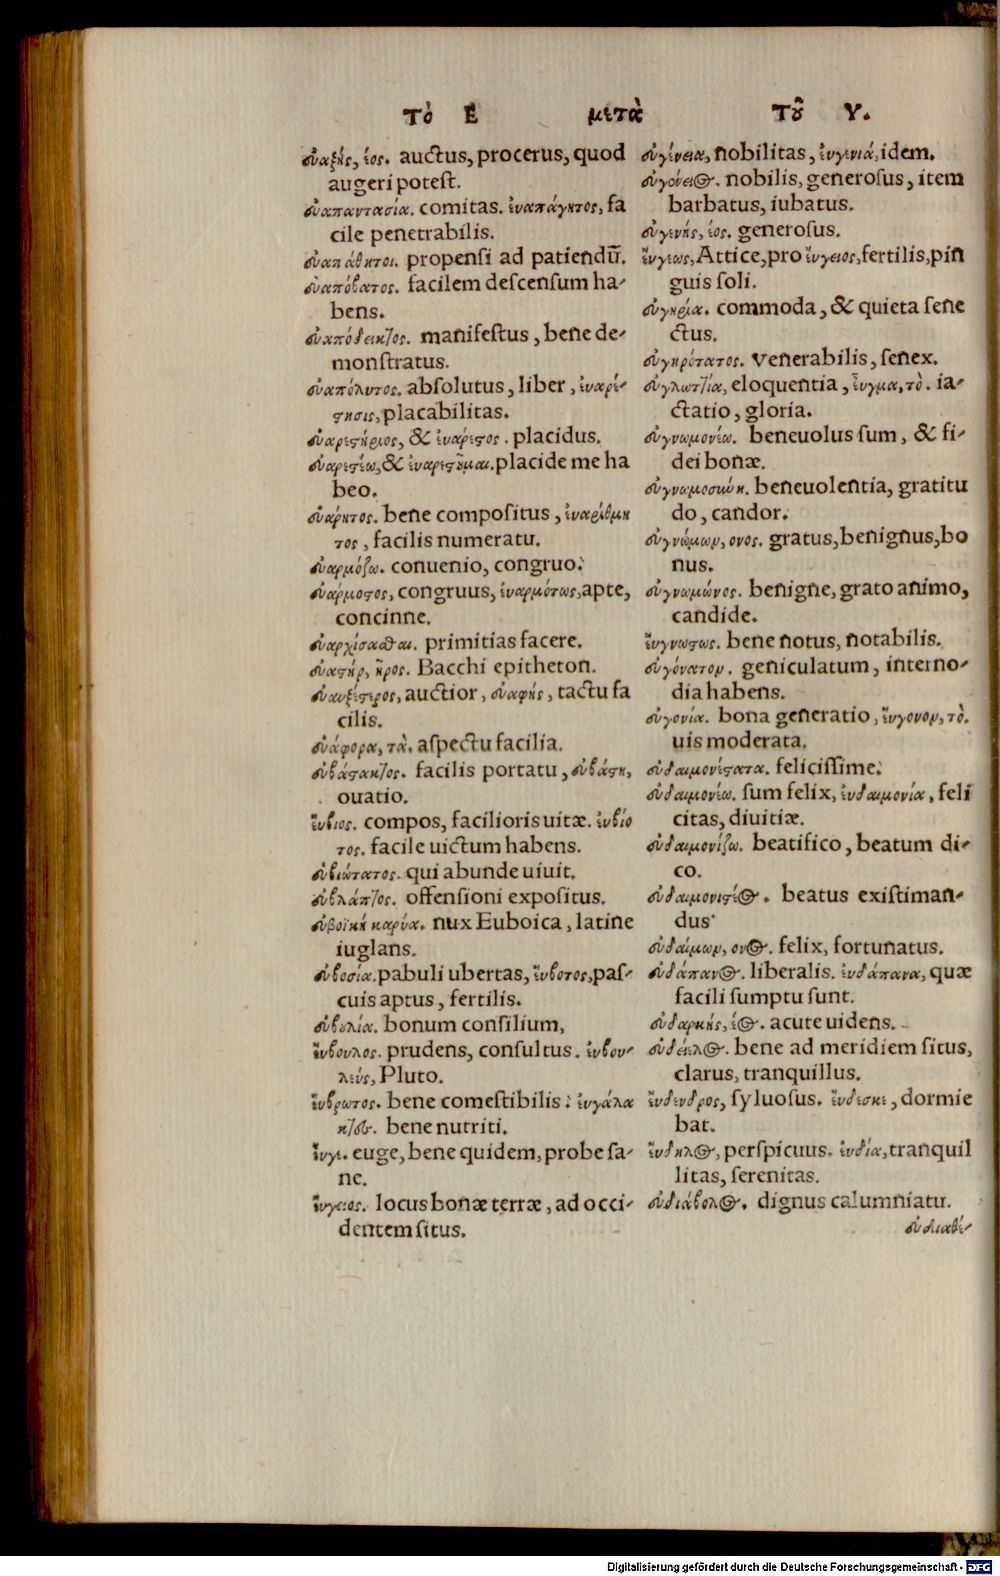 Τὸ Ε μετὰ Τοῦ Υ.
εὐαξής, έος. auctus, procerus, quod
augeri potest.
εὐαπαντασία. comitas. εὐαπάγητος, fa
cile penetrabilis.
εὐαπάθητοι. propensi ad patiendū.
εὐαπόβατος. facilem descensum ha-
bens.
εὐαπόδεικτος. manifestus, bene de-
monstratus.
εὐαπόλυτος. absolutus, liber, εὐαρέ-
στησις, placabilitas.
εὐαρεστήριος, & εὐάρεστος. placidus.
εὐαρεστέω, & εὐαρεστοῦμαι. placide me ha
beo.
εὐάρητος. bene compositus, εὐαρίθμη
τος, facilis numeratu.
εὐαρμόζω. conuenio, congruo.
εὐάρμοστος, congruus, εὐαρμόστως, apte,
concinne.
εὐαρχίσασθαι. primitias facere.
εὐαστήρ, ῆρος. Bacchi epitheton.
εὐαυξέστερος, auctior, εὐαφής, tactu fa
cilis.
εὐάφορα, τὰ. aspectu facilia.
εὐβάστακτος. facilis portatu, εὐβάστη,
ouatio.
εὔβιος. compos, facilioris uitæ. εὐβίο
τος. facile uictum habens.
εὐβιώτατος. qui abunde uiuit.
εὐβλάπτος. offensioni expositus.
εὐβοϊκὴ καρύα. nux Euboica, latine
iuglans.
εὐβοσία. pabuli ubertas, εὔβοτος, pas-
cuis aptus, fertilis.
εὐβουλία. bonum consilium,
εὔβουλος. prudens, consultus. εὐβου-
λεύς, Pluto.
εὔβρωτος. bene comestibilis: εὐγάλα
κτοι. bene nutriti.
εὖγε. euge, bene quidem, probe sa-
ne.
εὔγειος. locus bonæ terræ, ad occi-
dentem situs.
εὐγένεια, nobilitas, εὐγενιά, idem.
εὐγόνειος. nobilis, generosus, item
barbatus, iubatus.
εὐγενής, έος. generosus.
εὔγεως, Attice, pro εὔγειος, fertilis, pin
guis soli.
εὐγηρία. commoda, & quieta sene
ctus.
εὐγηρότατος. venerabilis, senex.
εὐγλωττία, eloquentia, εὖγμα, τὸ. ia-
ctatio, gloria.
εὐγνωμονέω. beneuolus sum, & fi-
dei bonæ.
εὐγνωμοσύνη. beneuolentia, gratitu
do, candor.
εὐγνώμων, ονος. gratus, benignus, bo
nus.
εὐγνωμώνος. benigne, grato animo,
candide.
εὔγνωστος. bene notus, notabilis.
εὐγόνατον. geniculatum, interno-
dia habens.
εὐγονία. bona generatio, εὔγονον, τὸ.
uis moderata.
εὐδαιμονέστατα. felicissime.
εὐδαιμονέω. sum felix, εὐδαιμονία, feli
citas, diuitiæ.
εὐδαιμονίζω. beatifico, beatum di-
co.
εὐδαιμονιστέος. beatus existiman-
dus
εὐδαίμων, ονος. felix, fortunatus.
εὐδάπανος. liberalis. εὐδάπανα, quæ
facili sumptu sunt.
εὐδαρκής, έος. acute uidens.
εὐδείελος. bene ad meridiem situs,
clarus, tranquillus.
εὔδενδρος, syluosus. εὔδεσκε, dormie
bat.
εὔδηλος, perspicuus. εὐδία, tranquil
litas, serenitas.
εὐδιάβολος. dignus calumniatu.
εὐδιαθέ-
Digitalisierung gefördert durch die Deutsche Forschungsgemeinschaft - DFG